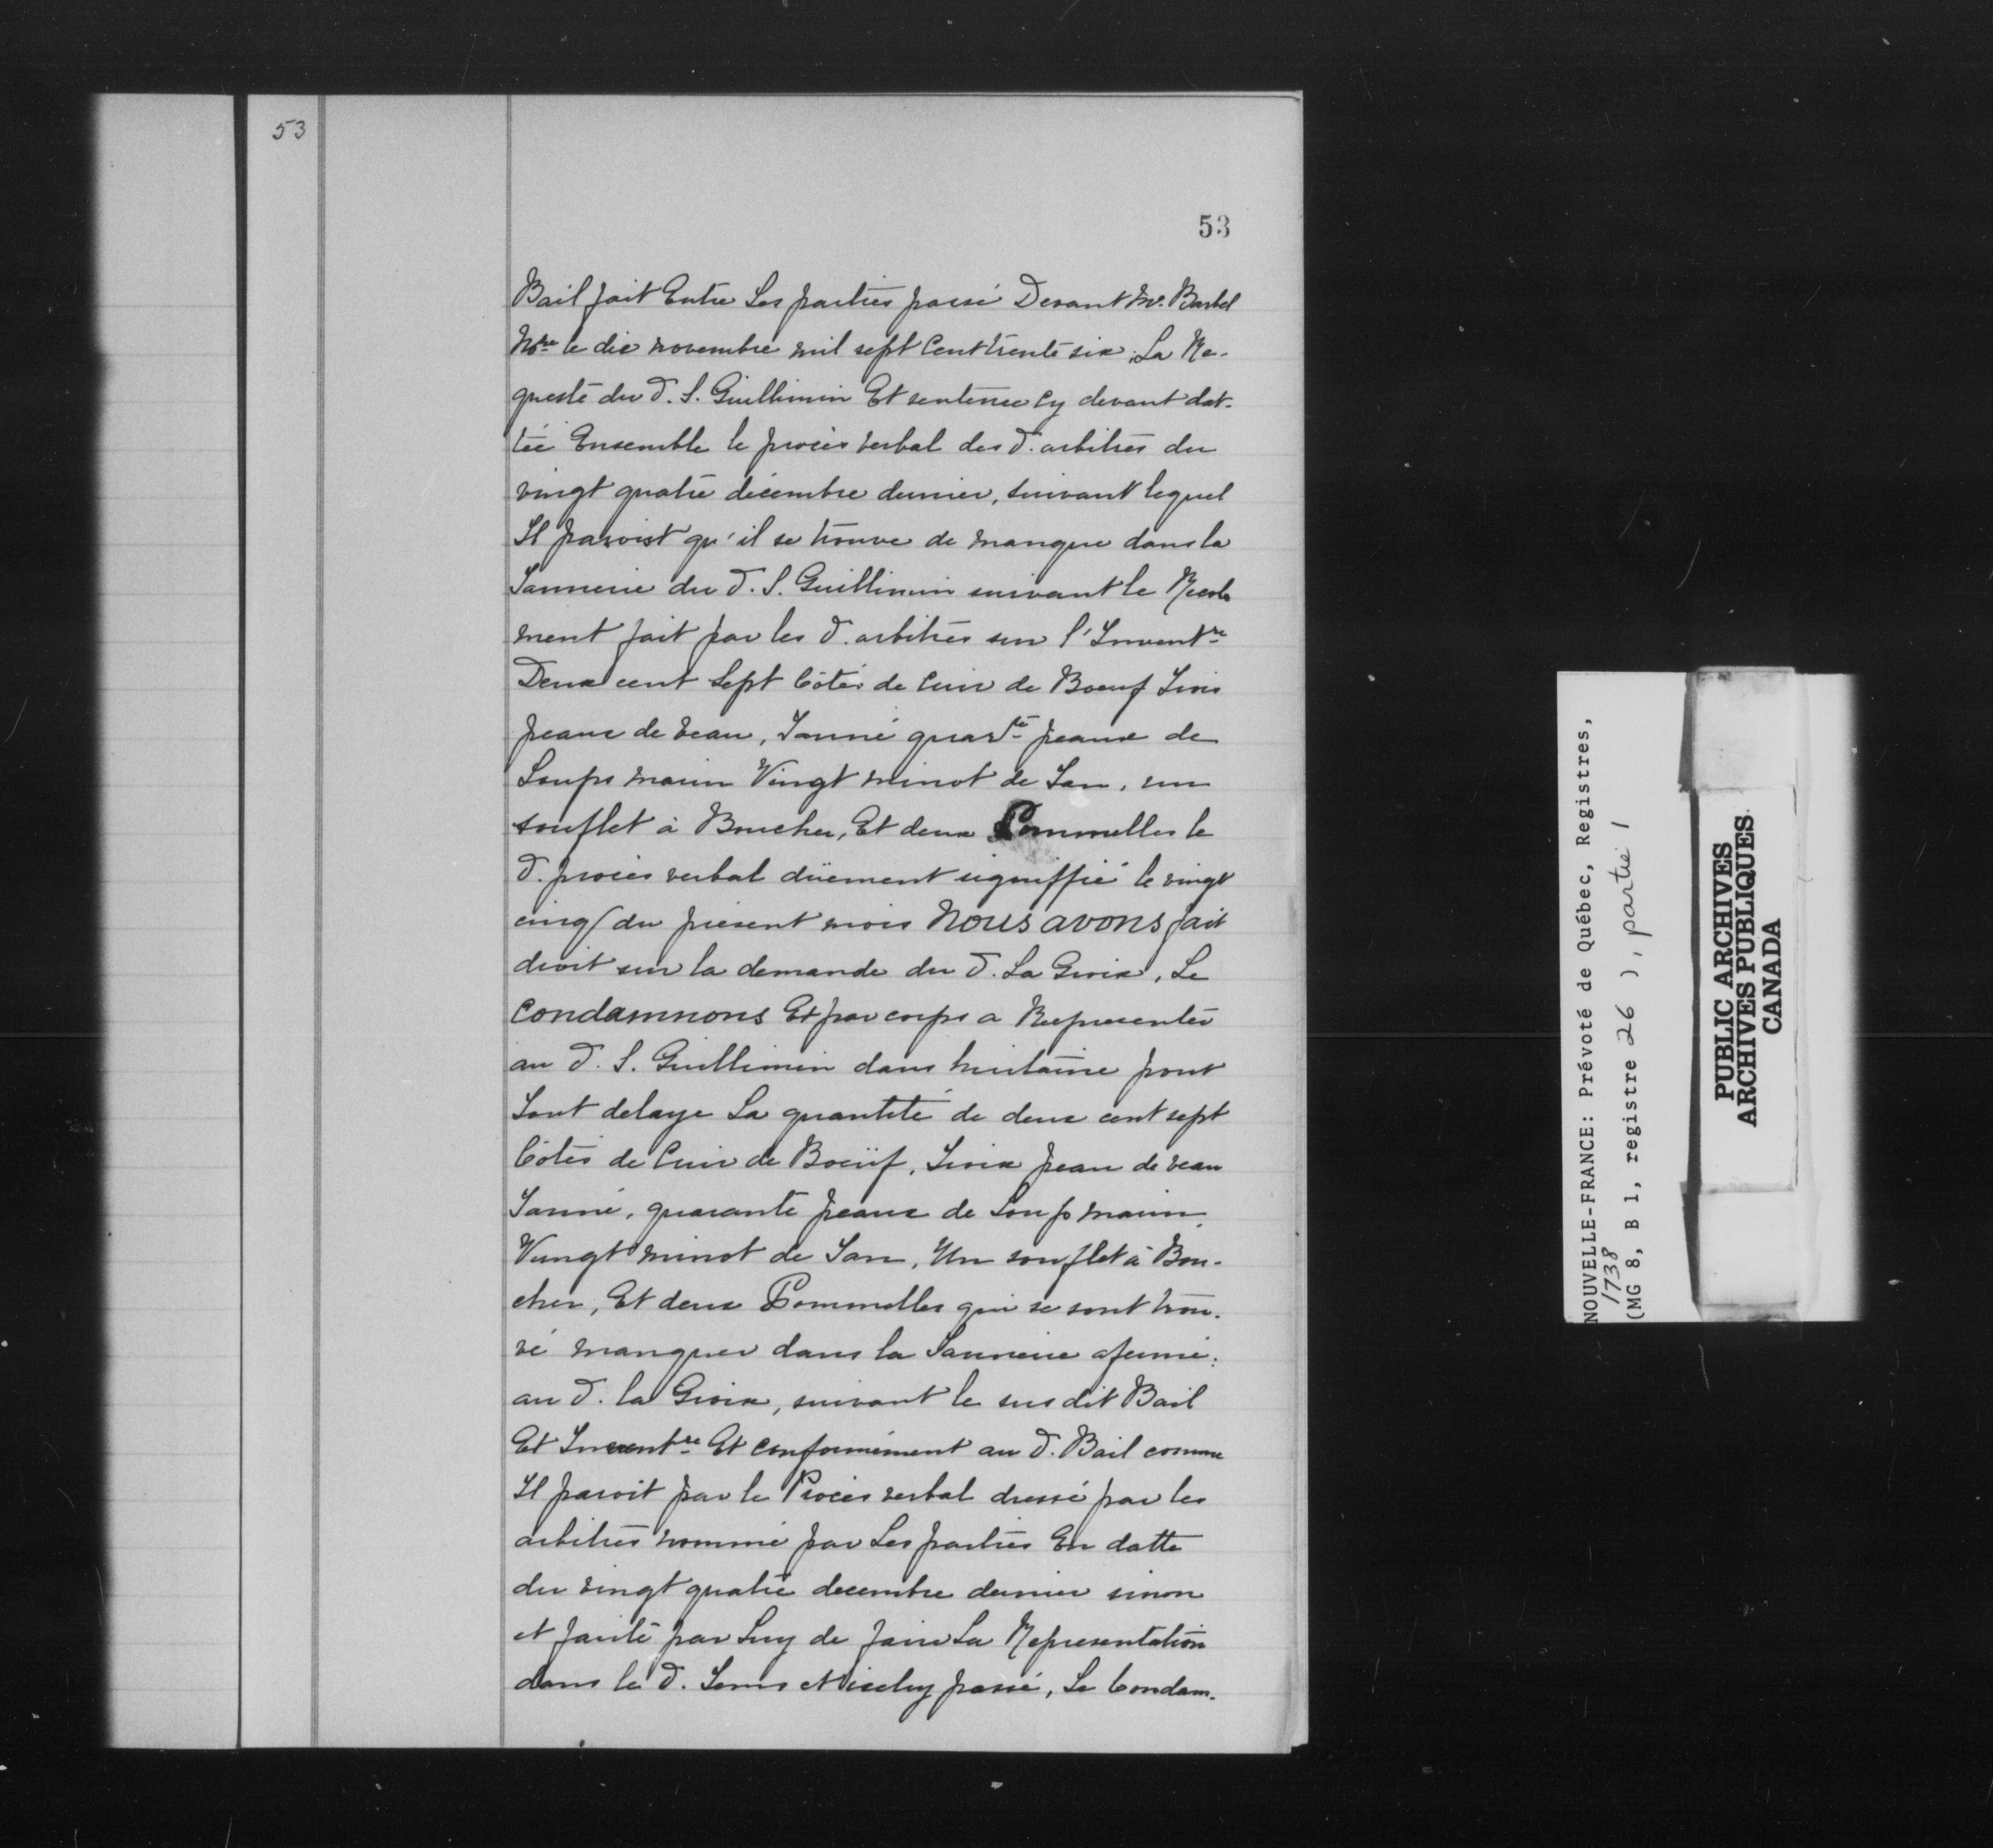 53
53
Bail fait Entre Les parties passé Devant Me. Barbel
Nore le dix novembre mil sept Cent trente six, La Re-
queste du d. S. Guillimin Et sentence Cy devant dat-
tée Ensemble le procès verbal des d. arbitres du
vingt quatre décembre dernier, suivant lequel
Il paroist qu'il se trouve de manque dans la
Tannerie du d. S. Guillimin suivant le Recole
ment fait par les d. arbitres sur l'Inventre
Deux cent Sept Côtés de Cuir de Boeuf Trois
peaux de veau, Tanné quarte peaux de
Loups marin Vingt minot de Tan, un
souflet à Boucher, Et deux Pommelles le
d. procès verbal düement signiffié le vingt
cinq du présent mois Nous avons fait
droit sur la demande du d. La Groix, Le
Condamnons Et par corps a Representer
au d. S. Guillimin dans huitaine pour
Tout delaye La quantité de deux cent sept
Côtés de Cuir de Boeüf, Troix peau de veau
Tanné, quarante peaux de Loup marin,
Vingt minot de Tan, Un souflet à Bou-
cher, Et deux Pommelles qui se sont trou-
vé manquer dans la Tannerie afermé
au d. la Groix, suivant le sus dit Bail
Et Inventre Et Conformément au d. Bail comme
Il paroit par le Procès verbal dressé par les
arbitres nommé par Les parties En datte
du vingt quatre decembre dernier sinon
et faute par Luy de faire La Representation
dans le d. Tems et iceluy passé, Le Condam-
NOUVELLE-FRANCE: Prévoté de Québec, Registres,
1738
(MG 8, B 1, registre 26 ), partie 1
PUBLIC ARCHIVES
ARCHIVES PUBLIQUES
CANADA